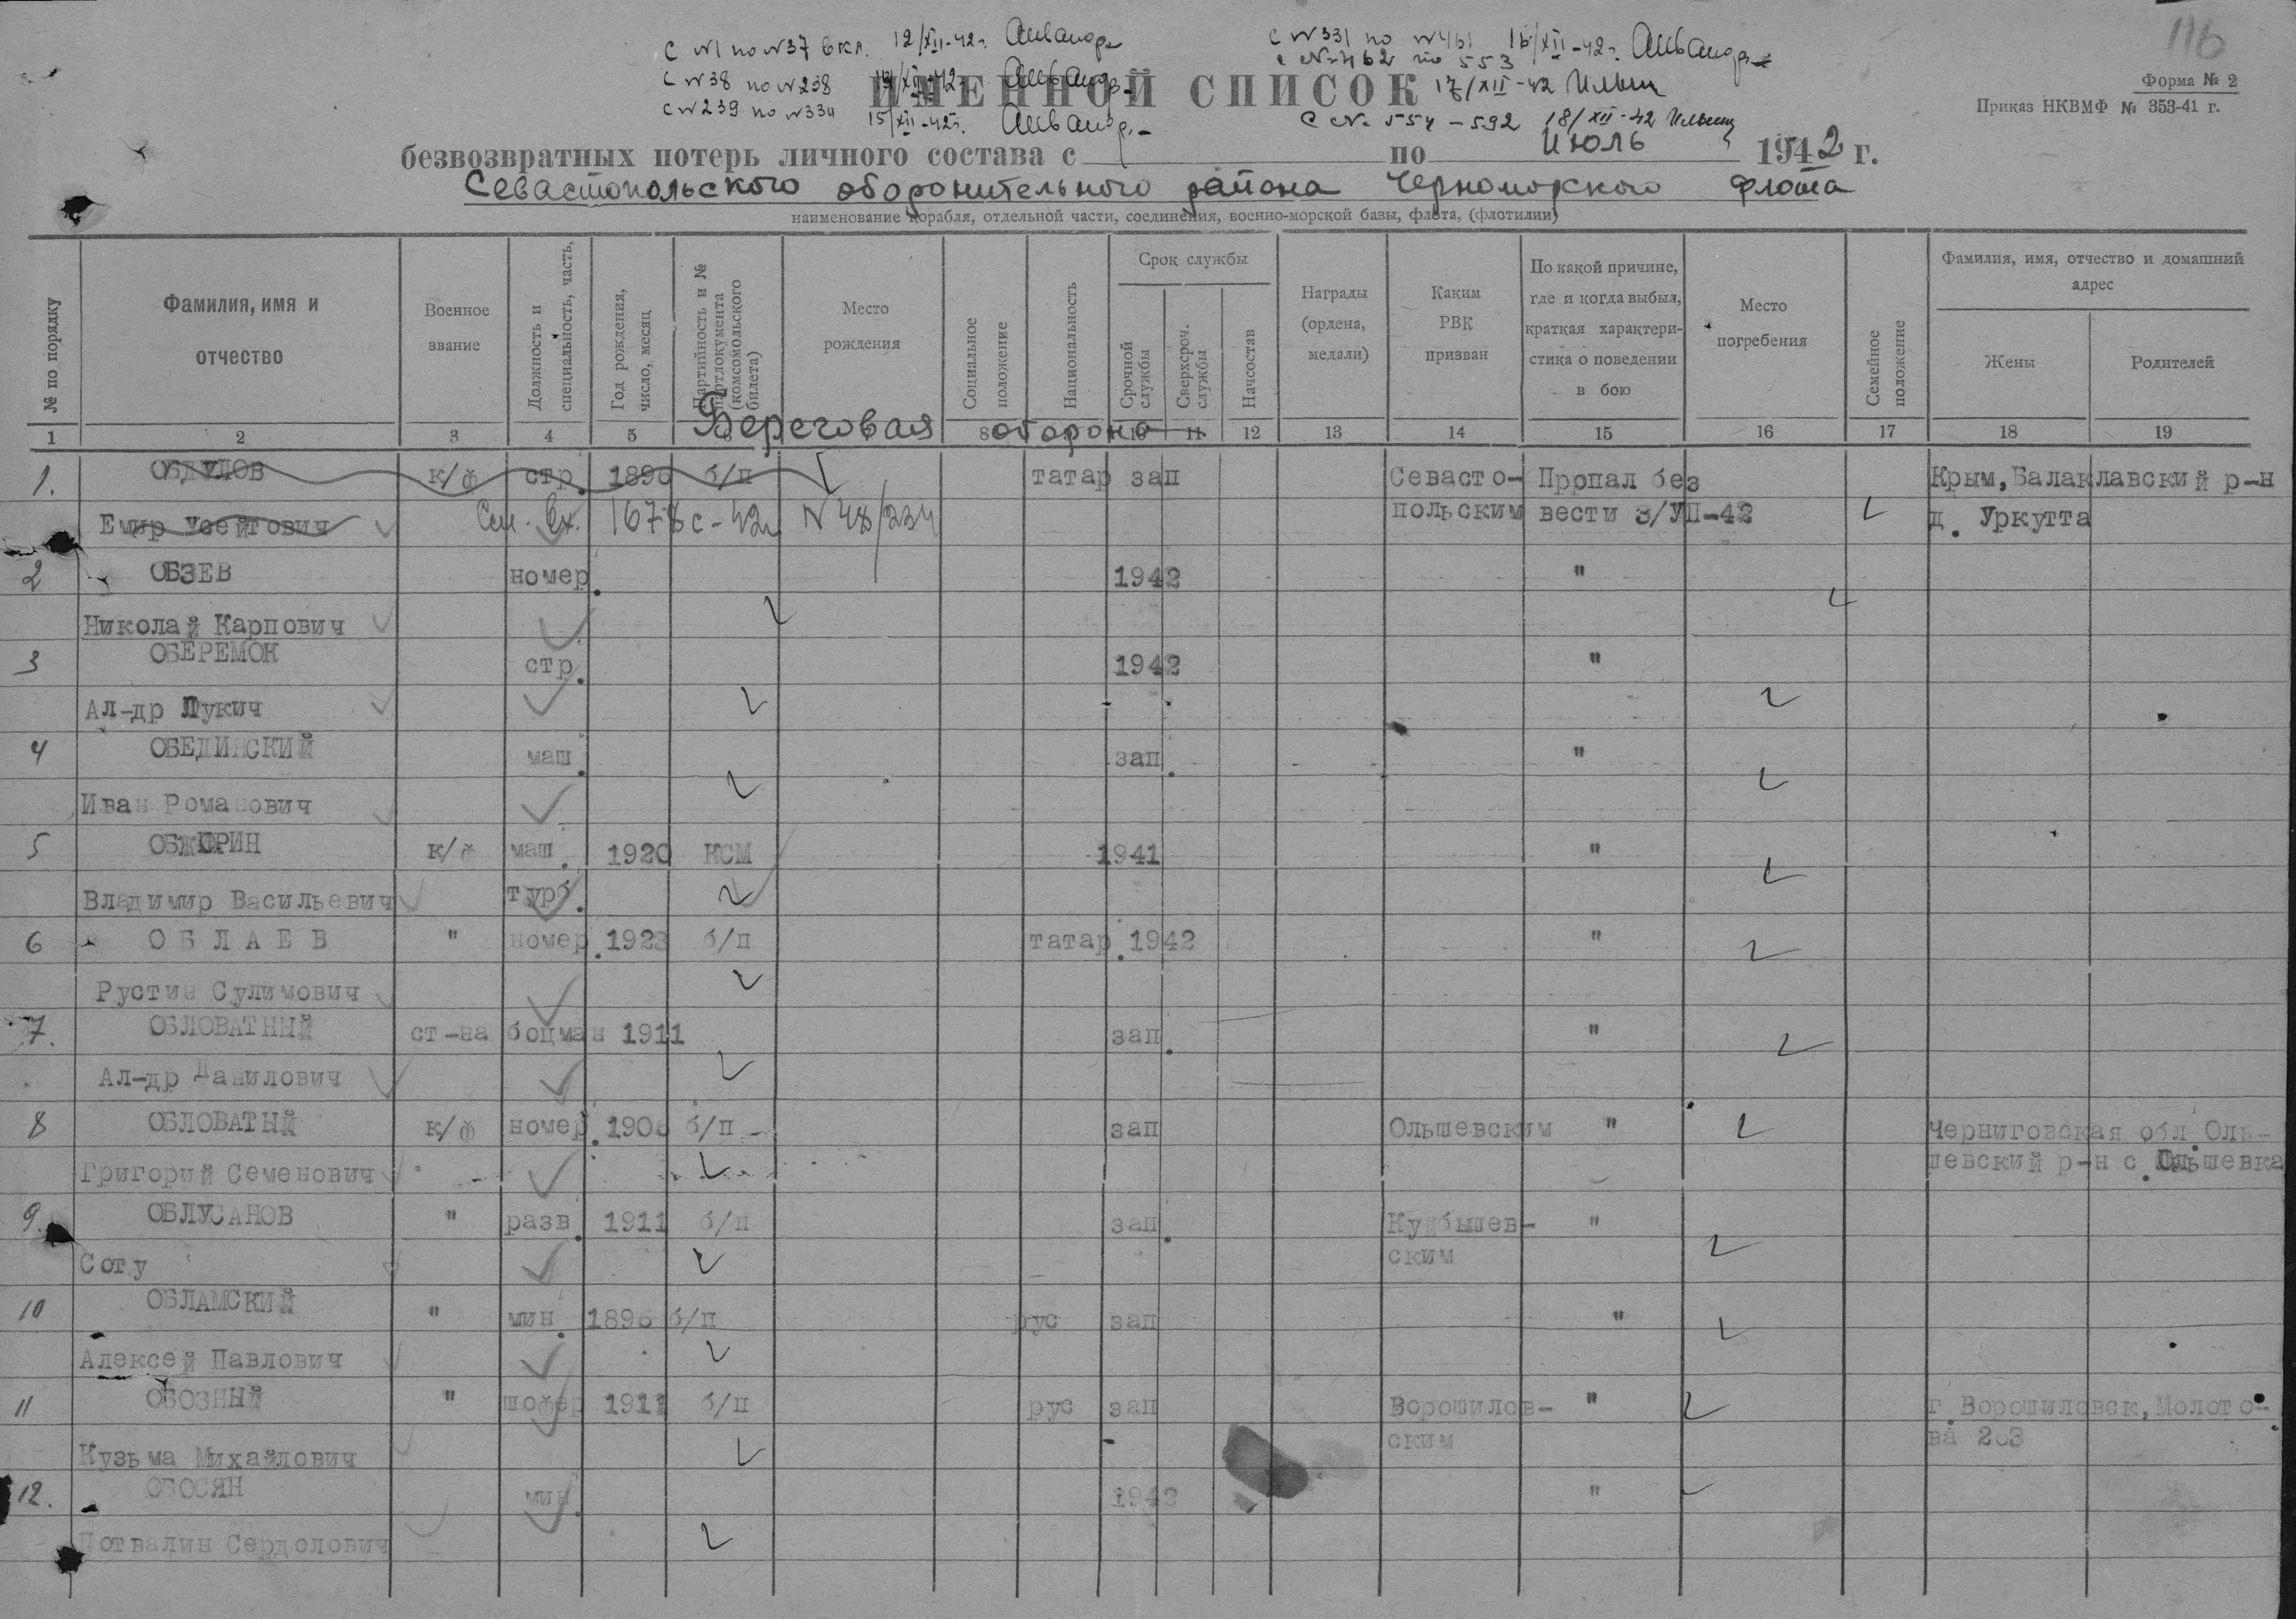 116
С №1 по №37 вкл. 12/XII-42г.
С №331 по №461 16/XII-42г.
С №38 по №238 /XII-42г.
с №462 по 553 17/XII-42
С №239 по №334 15/XII-42г.
С № 554 – 592 18/XII-42
Форма № 2
Приказ НКВМФ № 353-41 г.
ИМЕННОЙ СПИСОК
безвозвратных потерь личного состава с по июль 1942 г.
Севастопольского оборонительного района Черноморского флота
наименование корабля, отдельной части, соединения, военно-морской базы, флота, (флотилии)
№ по порядку
Фамилия, имя и отчество
Военное звание
Должность и специальность, часть,
Год рождения, число, месяц
Партийность и № партдокумента (комсомольского билета)
Место рождения
Социальное положение
Национальность
Срок службы
Срочной службы
Сверхсроч. службы
Начсостав
Награды (ордена, медали)
Каким РВК призван
По какой причине, где и когда выбыл, краткая характеристика о поведении в бою
Место погребения
Семейное положение
Фамилия, имя, отчество и домашний адрес
Жены
Родителей
1 2 3 4 5 8 10 11 12 13 14 15 16 17 18 19
Береговая оборона
1. ОБДУЛОВ к/ф стр. 1896 б/п татар зап Севасто- Пропал без Крым, Балаклавский р-н
Емир Усейтович См. Вх. 1678с-42г N 48/234 польским вести 3/УП-42 д. Уркутта
2 ОБЗЕВ номер. 1942 "
Николай Карпович
3 ОБЕРЕМОК стр. 1942 "
Ал-др Лукич
4 ОБЕДИНСКИЙ маш. зап. "
Иван Романович
5 ОБЖОРИН к/ф маш. 1920 КСМ 1941 "
Владимир Васильевич турб.
6 ОБЛАЕВ " номер. 1923 б/п татар. 1942 "
Рустин Сулимович
7. ОБЛОВАТНЫЙ ст-на боцман 1911 зап. "
Ал-др Данилович
8 ОБЛОВАТЫЙ к/ф номер. б/п зап Ольшевским " Черниговская обл. Оль-
Григорий Семенович шевский р-н с. Ольшевка
9. ОБЛУСАНОВ " разв. 1911 б/п зап. Куйбышев- "
Согу ским
10 ОБЛАМСКИЙ " мин. 1896 б/п рус зап "
Алексей Павлович
11 ОБОЗНЫЙ " шофер 1911 б/п рус зап Ворошилов- " г. Ворошиловск, Молото-
Кузьма Михайлович ским ва 263
12. ОБОСЯН мин. 1942 "
Потвалин Сердолович